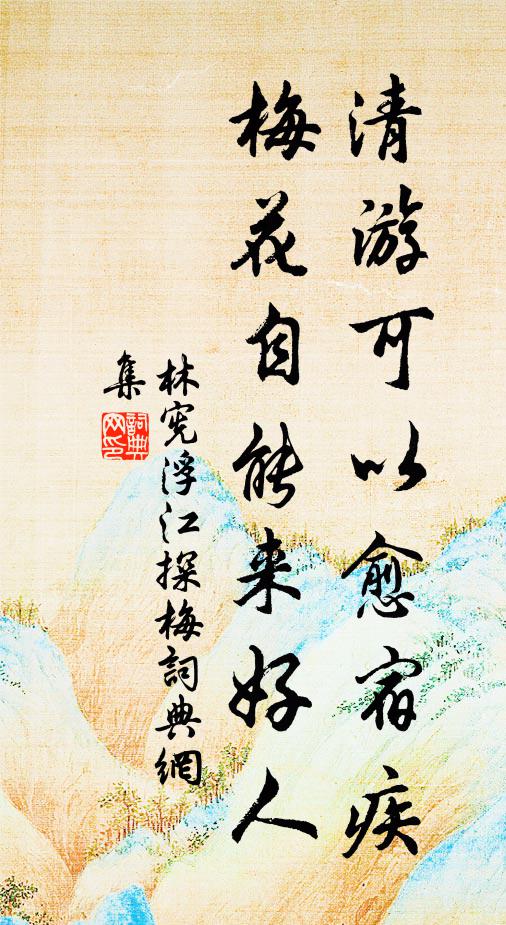 清游可以愈宿疾
梅花自能来好人
林宪浮江探梅詞典網
集
詞典
网印